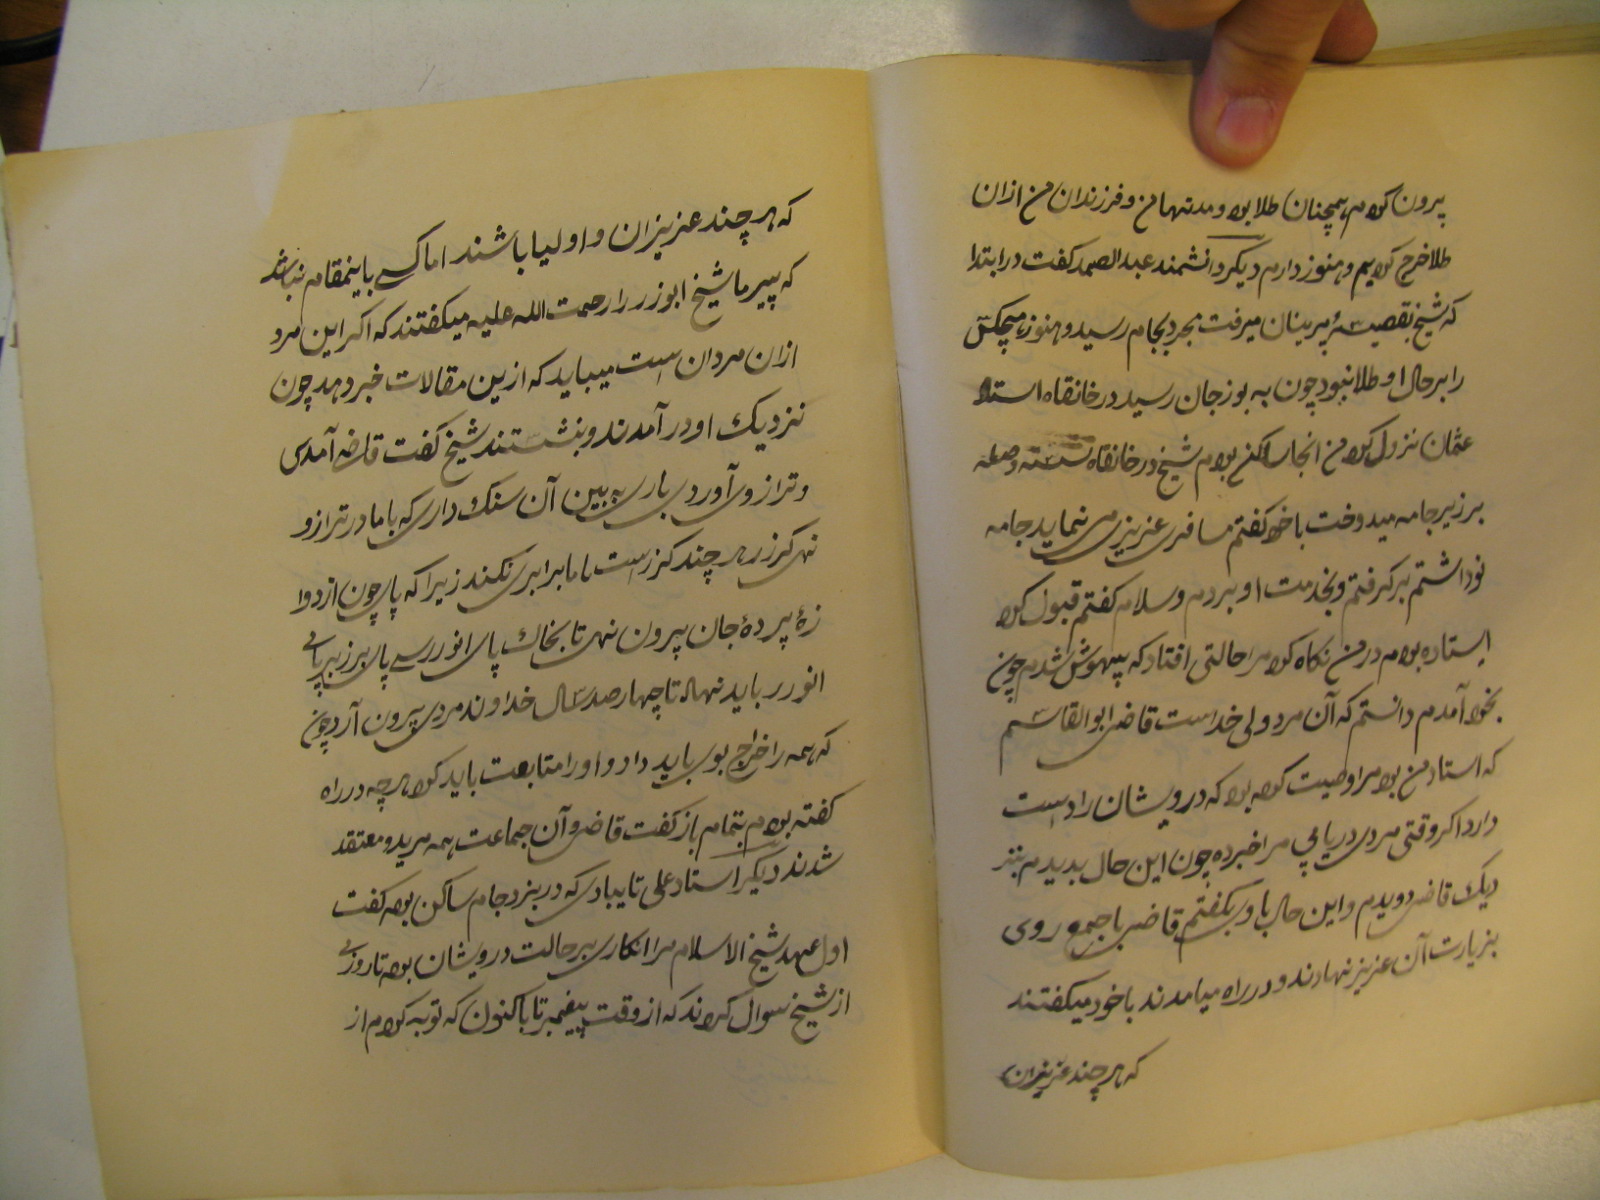 پرون کردم همچنان طلا بود و مدتها من و فرزندان من ازان
طلا خرج کردیم و هنوز دارم دیکر دانشمند عبدالصمد کفت در ابتدا
که شیخ میرفت بجام رسید و هنوز هیچکس
را بر حال او طلا نبود چون به بوزجان رسید در خانقاه استاد
عثمان نزول کرد من انجا ساکن بودم شیخ در خانقاه نشسته وصله
بر زیر جامه میدوخت با خود کفتم مسافری عزیزی می نماید جامه
نو داشتم بر کرفتم و بخدمت او بردم و سلام کفتم قبول کرد
ایستاده بودم در من نکاه کرد مرا حالتی افتاد که بیهوش شدم چون
بخود آمدم دانستم که آن مرد ولی خداست قاضی ابوالقاسم
که استاد من بود مرا وصیت کرده بود که درویشان را دوست
دار و اکر وقتی مردی دریابی مرا خبر ده چون این حال بدیدم بنز
دیک قاضی دویدم و این حال با وی بکفتم قاضی با جمع روی
بزیارت آن عزیز نهادند و در راه میامدند با خود میکفتند
که هر چند عزیزان
که هر چند عزیزان و اولیا باشند اما کسی باینمقام نباشد
که پیر ما شیخ ابوزر را رحمت الله علیه میکفتند که اکر این مرد
ازان مردان است میباید که ازین مقالات خبر دهد چون
نزدیک او در آمدند و بنشستند شیخ کفت قاضی آمدی
و ترازوی آوردی باری به بین آن سنک داری که با ما در ترازو
نهی کرز هر چند کرز است با ما برابری نکند زیرا که پای چون از دوا
زه پرده جان پیرون نهی تا بخاک پای انور رسی پای بر زبر پای
انور باید نهاد تا چهار صد سال خداوند مردی پیرون آرد چون
که همه را خراج بوی باید داد و او را متابعت باید کرد هر چه در راه
کفته بودم بتمام باز کفت قاضی و آن جماعت همه مرید و معتقد
شدند دیکر استاد علی تایبادی که در بزد جام ساکن بوده کفت
اول عهد شیخ الاسلام مرا انکاری بر حالت درویشان بوده تا روزی
از شیخ سوال کردند که از وقت پیغمبر تا باکنون که توبه کردم از